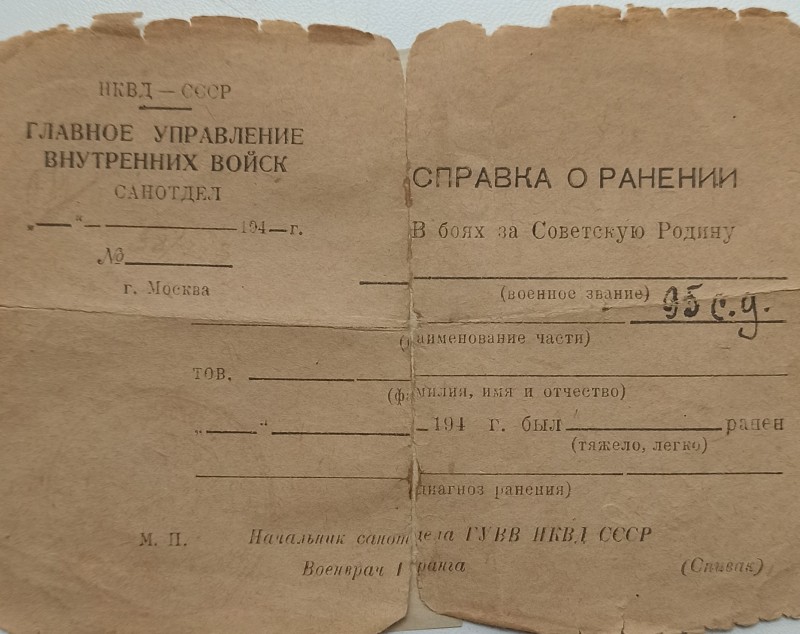 НКВД — СССР
ГЛАВНОЕ УПРАВЛЕНИЕ
ВНУТРЕННИХ ВОЙСК
САНОТДЕЛ
„ “ 194 г.
№
г. Москва
СПРАВКА О РАНЕНИИ
В боях за Советскую Родину
(военное звание)
95 с.д.
(наименование части)
тов.
(фамилия, имя и отчество)
„ “ 194 г. был ранен
(тяжело, легко)
(диагноз ранения)
М. П. Начальник санотдела ГУВВ НКВД СССР
Военврач 1 ранга (Спивак)